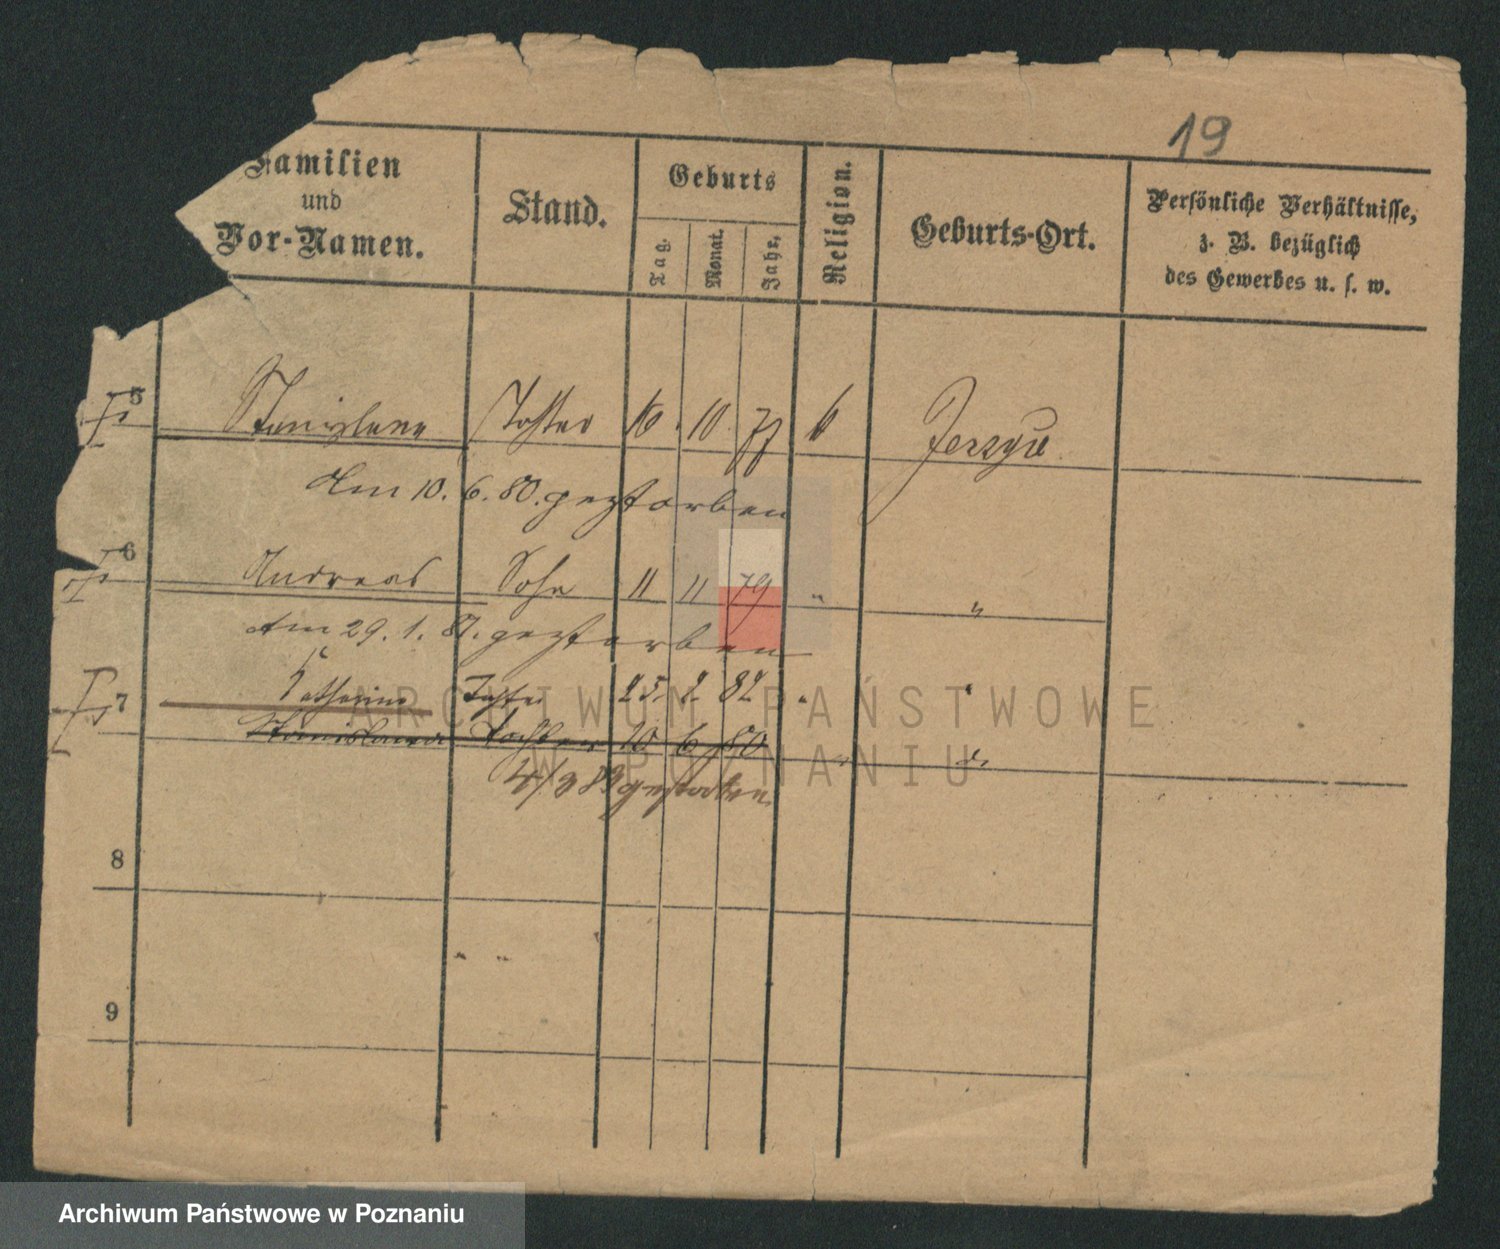 19
Familien
und
Vor-Namen.
Stand.
Geburts
Tag.
Monat.
Jahr.
Religion.
Geburts-Ort.
Persönliche Verhältnisse,
z. B. bezüglich
des Gewerbes u. s. w.
5 Stanislawa Tochter 10. 10. 77 k Jerzyce
Am 10. 6. 80. gestorben
6 Andreas Sohn 11 11 79 " "
Am 29. 1. 81. gestorben
7 Katharina Tochter 25. 2. 82 " "
Stanislawa Tochter 10 6 80 " "
83 gestorben
8
9
ARCHIWUM PAŃSTWOWE
W POZNANIU
Archiwum Państwowe w Poznaniu